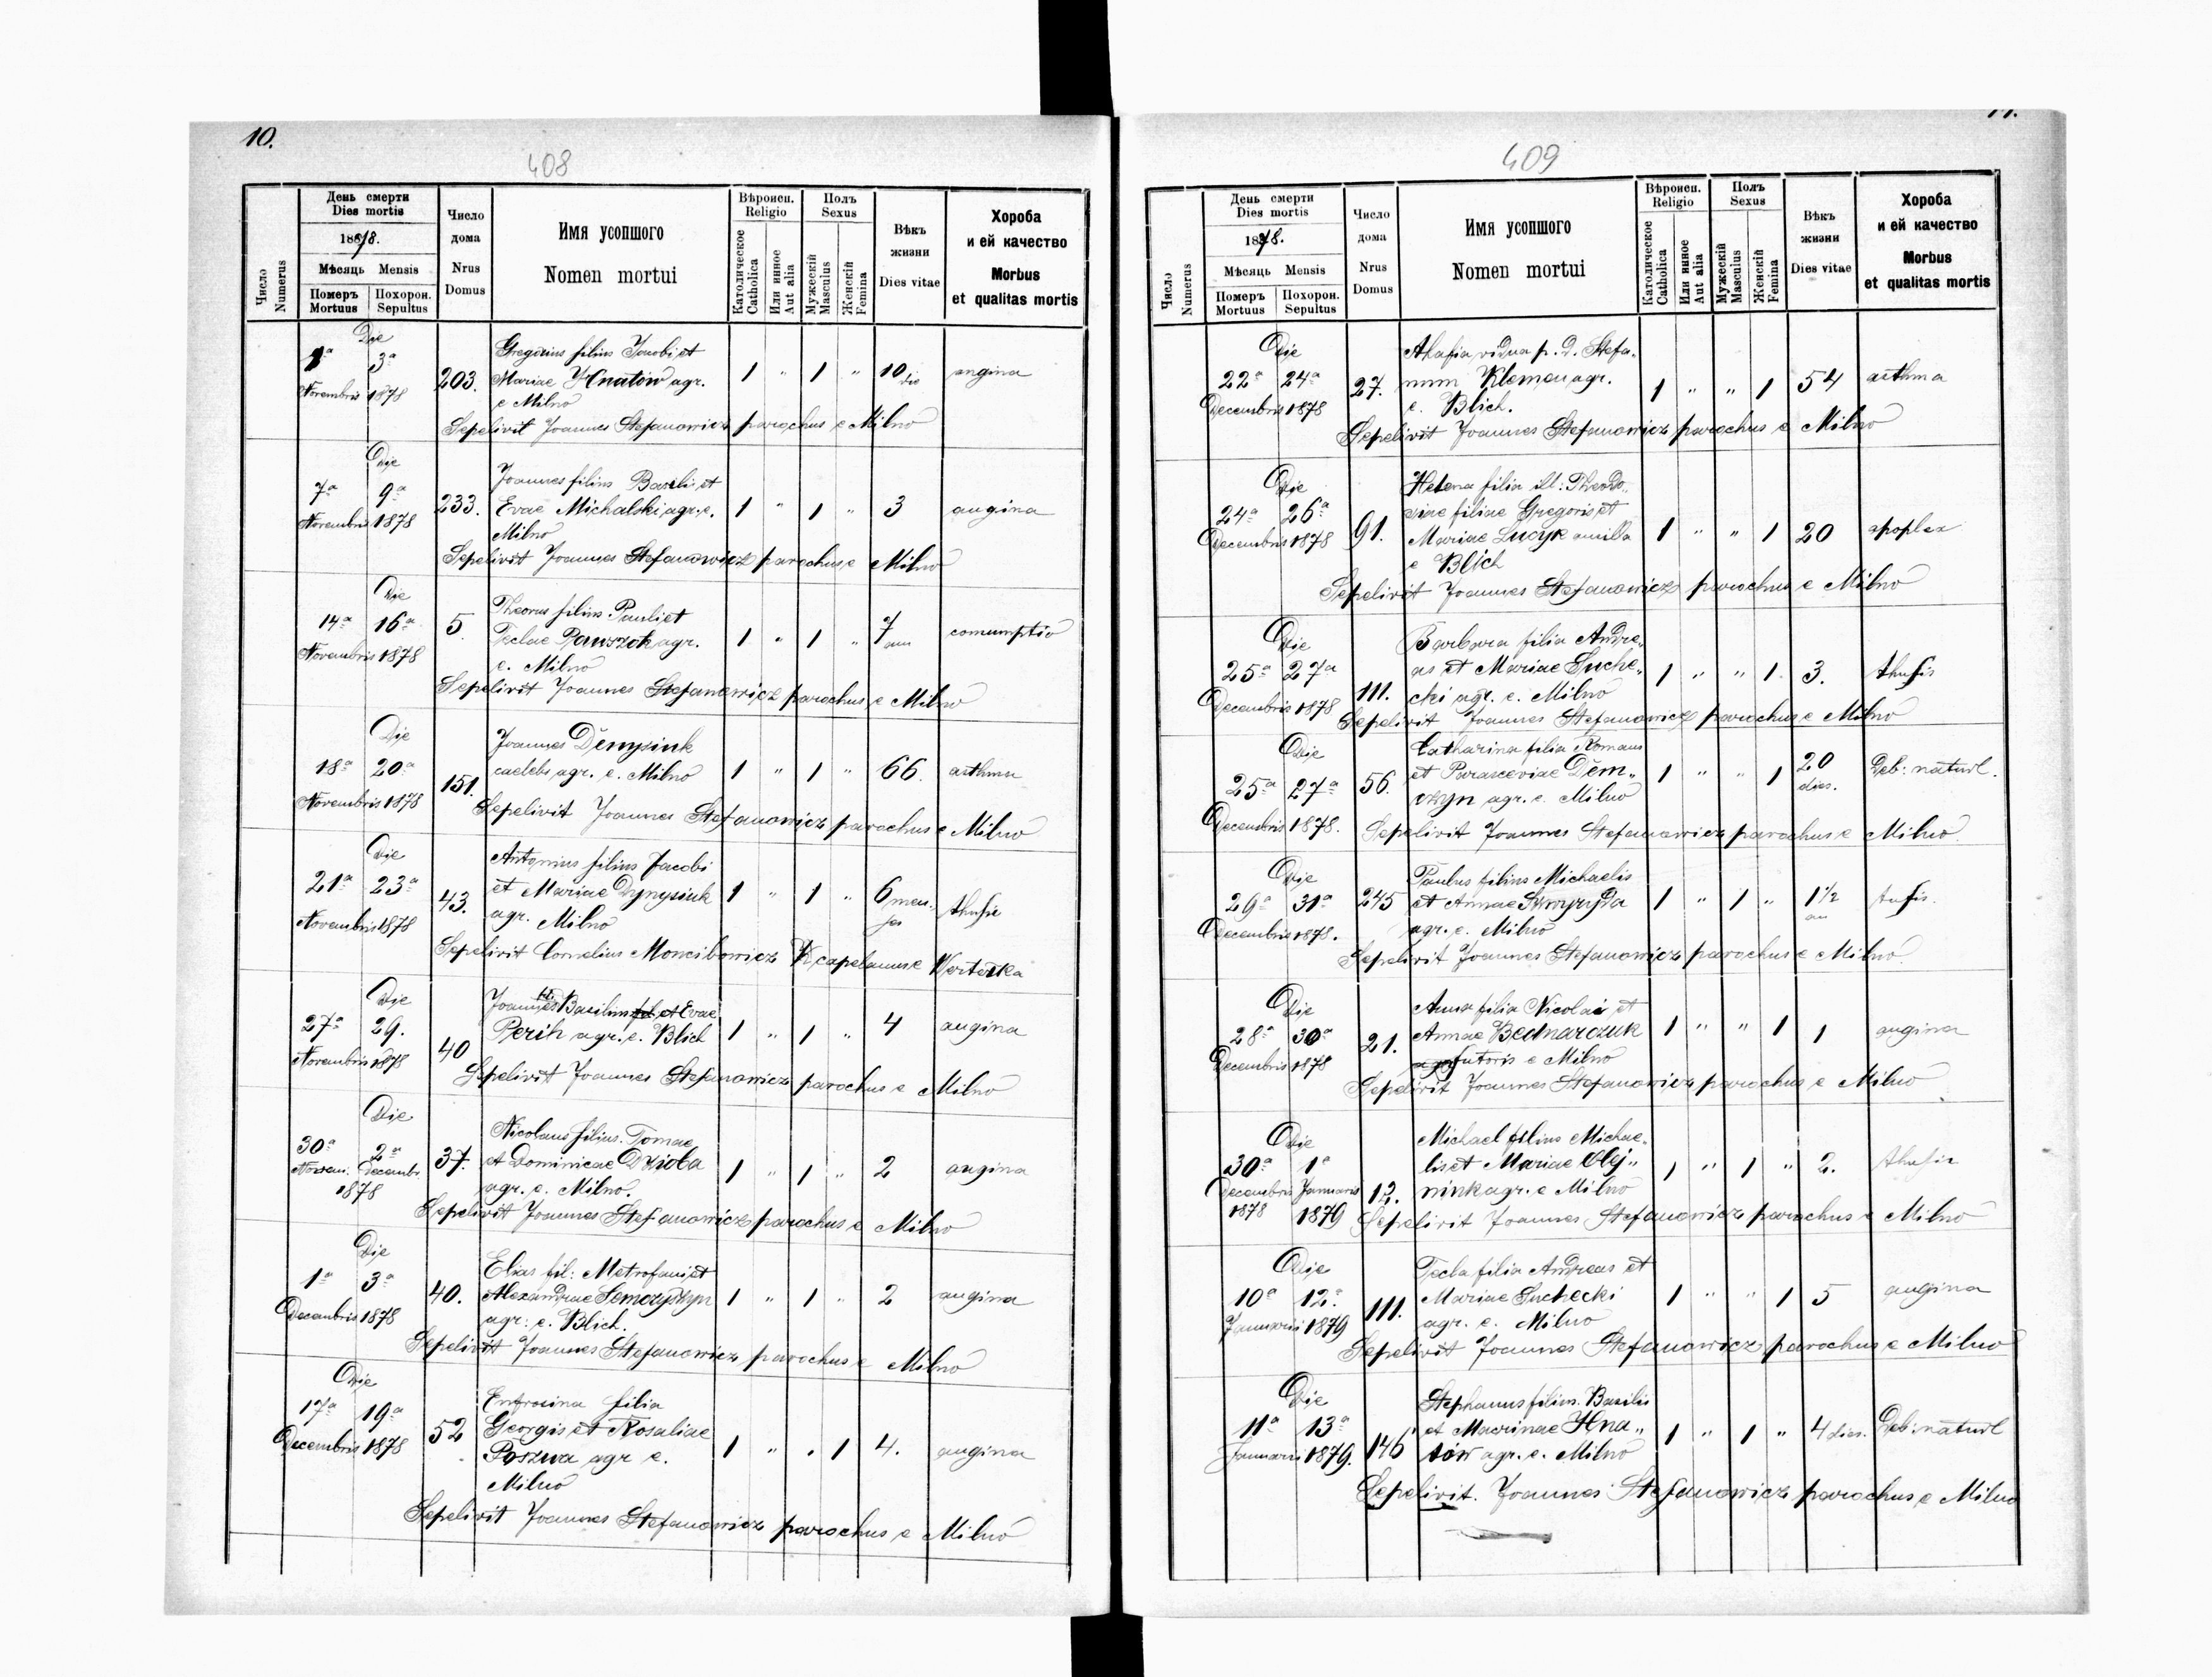 10.
408
День смерти
Dies mortis
1878.
Мѣсяць Mensis
Померъ Похорон.
Mortuus Sepultus
Число
Numerus
Число
дома
Nrus
Domus
Имя усопшого
Nomen mortui
Вѣроисп.
Religio
Католическое
Catholica
Или инное
Aut alia
Полъ
Sexus
Мужескій
Masculus
Женскій
Femina
Вѣкъ
жизни
Dies vitae
Хороба
и ей качество
Morbus
et qualitas mortis
Die
1ª 3ª
Novembris 1878
203.
Gregorius filius Jacobi et
Mariae Hnatów agr.
e Milno
1 " 1 " 10 die angina
Sepelivit Joannes Stefanowicz parochus e Milno
Die
7ª 9ª
Novembris 1878
233.
Joannes filius Basilii et
Evae Michalski agr. e.
Milno
1 " 1 " 3 angina
Sepelivit Joannes Stefanowicz parochus e Milno
Die
14ª 16ª
Novembris 1878
5.
filius Pauli et
Teclae agr.
e. Milno
1 " 1 " 7 ann consumptio
Sepelivit Joannes Stefanowicz parochus e Milno
Die
18ª 20ª
Novembris 1878
151.
Joannes Denysiuk
caelebs agr. e. Milno
1 " 1 " 66. asthma
Sepelivit Joannes Stefanowicz parochus e Milno
Die
21ª 23ª
Novembris 1878
43.
Antonius filius Jacobi
et Mariae Dynysiuk
agr. Milno
1 " 1 " 6 men-
ses thusis
Sepelivit Cornelius Moncibowicz capelanus e Wertełka
Die
27ª 29.
Novembris 1878
40
Joannes fil Basilius et Evae
Perih agr. e. Blich
1 " 1 " 4 angina
Sepelivit Joannes Stefanowicz parochus e Milno
Die
30ª 2ª
Novem. Decembr.
1878
37.
Nicolaus filius Tomae
et Dominicae Dzioba
agr. e. Milno.
1 " 1 " 2 angina
Sepelivit Joannes Stefanowicz parochus e Milno
Die
1ª 3ª
Decembris 1878
40.
Elias fil: Metrofani et
Alexandrae
agr: e. Blich.
1 " 1 " 2 angina
Sepelivit Joannes Stefanowicz parochus e Milno
Die
17ª 19ª
Decembris 1878
52
Eufrosina filia
Georgis et Rosaliae
Poszwa agr e.
Milno
1 " . 1 4. angina
Sepelivit Joannes Stefanowicz parochus e Milno
11.
409
День смерти
Dies mortis
1878.
Мѣсяць Mensis
Померъ Похорон.
Mortuus Sepultus
Число
Numerus
Число
дома
Nrus
Domus
Имя усопшого
Nomen mortui
Вѣроисп.
Religio
Католическое
Catholica
Или инное
Aut alia
Полъ
Sexus
Мужескій
Masculus
Женскій
Femina
Вѣкъ
жизни
Dies vitae
Хороба
и ей качество
Morbus
et qualitas mortis
Die
22ª 24ª
Decembris 1878
27.
Ahafia vidua p. d. Stefa-
num Klemen agr.
e. Blich.
1 " " 1 54 asthma
Sepelivit Joannes Stefanowicz parochus e Milno
Die
24ª 26ª
Decembris 1878
91.
Helena filia ill: Theodo-
siae filiae Gregoris et
Mariae Lucyk ancilla
e Blich
1 " " 1 20 apoplex
Sepelivit Joannes Stefanowicz parochus e Milno
Die
25ª 27ª
Decembris 1878
111.
Barbara filia Andre-
as et Mariae Suche-
cki agr. e. Milno
1 " " 1. 3. thusis
Sepelivit Joannes Stefanowicz parochus e Milno
Die
25ª 27ª
Decembris 1878.
56.
Catharina filia Romans
et Parasceviae Dem-
czyn agr. e. Milno
1 " " 1 20 dies. Deb: naturl.
Sepelivit Joannes Stefanowicz parochus e Milno
Die
29ª 31ª
Decembris 1878.
245
Paulus filius Michaelis
et Annae
agr. e. Milno
1 " 1 " 1 1/2 an tusis.
Sepelivit Joannes Stefanowicz parochus e Milno.
Die
28ª 30ª
Decembris 1878
21.
Anna filia Nicolai et
Annae Bednarczuk
sutoris e Milno
1 " " 1 1 angina
Sepelivit Joannes Stefanowicz parochus e Milno
Die
30ª 1ª
Decembris Januaris
1878 1879
12.
Michael filius Michae-
lis et Mariae Olej-
niuk agr. e Milno
1 " 1 " 2. thusis
Sepelivit Joannes Stefanowicz parochus e Milno
Die
10ª 12.ª
Januarii 1879
111.
Tecla filia Andreas et
Mariae Suchecki
agr. e. Milno
1 " " 1 5 angina
Sepelivit Joannes Stefanowicz parochus e Milno
Die
11ª 13ª
Januarii 1879.
146
Stephanus filius Basilii
et Marinae Hna-
tów agr. e. Milno
1 " 1 " 4 dies. Deb: naturl
Sepelivit. Joannes Stefanowicz parochus e Milno